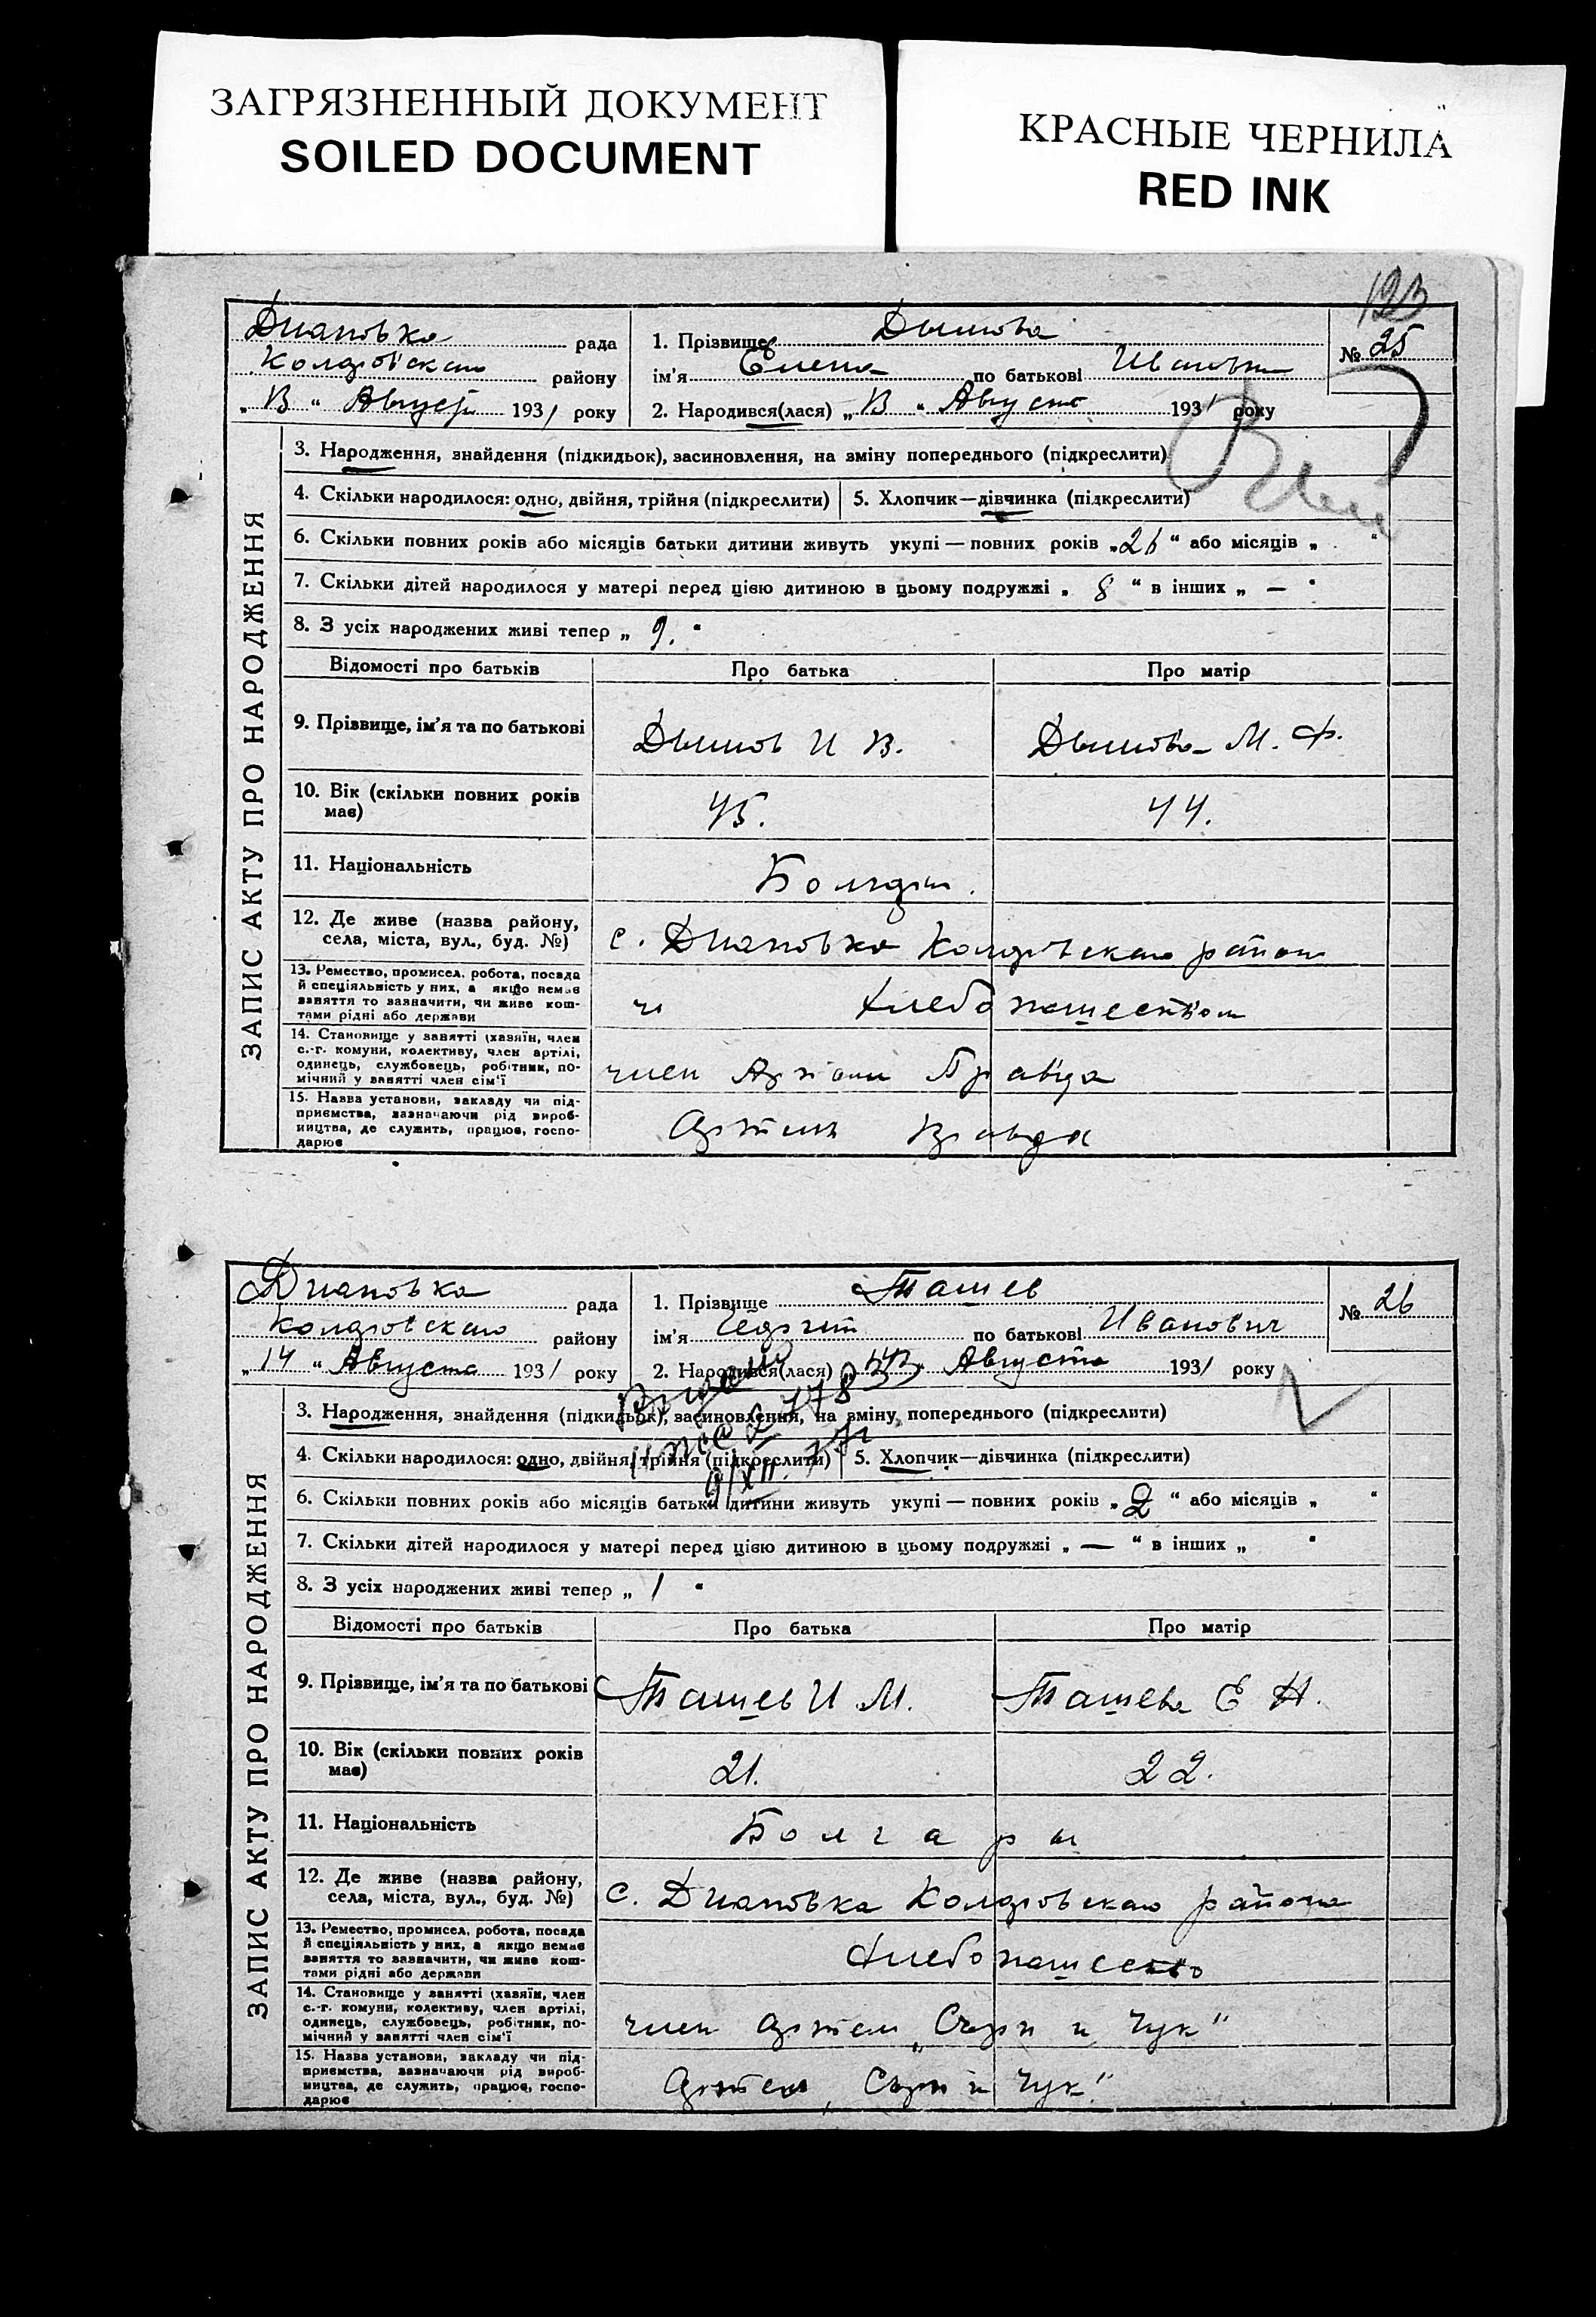 ЗАГРЯЗНЕННЫЙ ДОКУМЕНТ
SOILED DOCUMENT
КРАСНЫЕ ЧЕРНИЛА
RED INK
Диановка рада
Коларовскаго району
Август 1931 року
1. Прізвище Дымова
ім'я Елена по батькові Ивановна
2. Народився(лася) Августа 1931 року
№ 25
ЗАПИС АКТУ ПРО НАРОДЖЕННЯ
3. Народження, знайдення (підкидьок), засиновлення, на зміну попереднього (підкреслити)
4. Скільки народилося: одно, двійня, трійня (підкреслити)
5. Хлопчик—дівчинка (підкреслити)
6. Скільки повних років або місяців батьки дитини живуть укупі — повних років „26“ або місяців „ “
7. Скільки дітей народилося у матері перед цією дитиною в цьому подружжі „ 8 “ в інших „ — “
8. З усіх народжених живі тепер „ 9. “
Відомості про батьків
Про батька
Про матір
9. Прізвище, ім'я та по батькові
Дымов И В.
Дымова М. Ф.
10. Вік (скільки повних років має)
45.
44.
11. Національність
Болгары
12. Де живе (назва району, села, міста, вул., буд. №)
с. Диановка Коларовскаго района
13. Ремество, промисел, робота, посада й спеціяльність у них, а якщо немає заняття то зазначити, чи живе коштами рідні або держави
Хлебопашеством
14. Становище у занятті (хазяїн, член с.-г. комуни, колективу, член артілі, одинець, службовець, робітник, помічний у занятті член сім'ї
член Артели Правда
15. Назва установи, закладу чи підприємства, зазначаючи рід виробництва, де служить, працює, господарює
Артель Правда
Диановка рада
Коларовскаго району
„ 14 “ Августа 1931 року
1. Прізвище Ташев
ім'я Георгий по батькові Иванович
2. Народився(лася) Августа 1931 року
№ 26
ЗАПИС АКТУ ПРО НАРОДЖЕННЯ
3. Народження, знайдення (підкидьок), засиновлення, на зміну попереднього (підкреслити)
4. Скільки народилося: одно, двійня, трійня (підкреслити)
5. Хлопчик—дівчинка (підкреслити)
6. Скільки повних років або місяців батьки дитини живуть укупі — повних років „ 2 “ або місяців „ “
7. Скільки дітей народилося у матері перед цією дитиною в цьому подружжі „ — “ в інших „ “
8. З усіх народжених живі тепер „ 1 “
Відомості про батьків
Про батька
Про матір
9. Прізвище, ім'я та по батькові
Ташев И М.
Ташева Е Н.
10. Вік (скільки повних років має)
21.
22.
11. Національність
Болгары
12. Де живе (назва району, села, міста, вул., буд. №)
с. Диановка Коларовскаго района
13. Ремество, промисел, робота, посада й спеціяльність у них, а якщо немає заняття то зазначити, чи живе коштами рідні або держави
Хлебопашество
14. Становище у занятті (хазяїн, член с.-г. комуни, колективу, член артілі, одинець, службовець, робітник, помічний у занятті член сім'ї
член артели „Сърп и Чук“
15. Назва установи, закладу чи підприємства, зазначаючи рід виробництва, де служить, працює, господарює
Артель „Сърп и Чук“